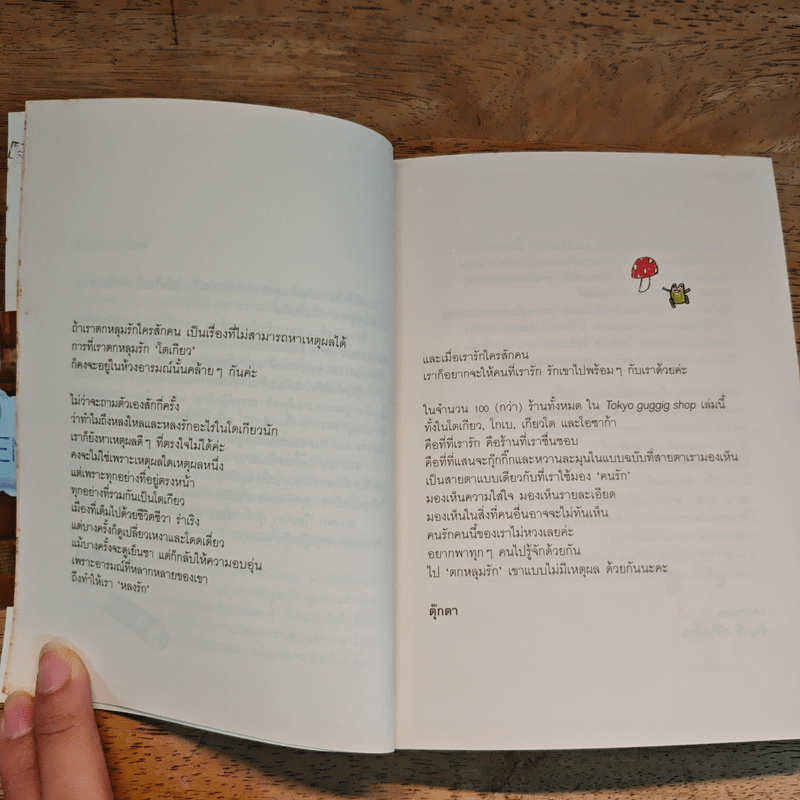 ถ้าเราตกหลุมรักใครสักคน เป็นเรื่องที่ไม่สามารถหาเหตุผลได้
การที่เราตกหลุมรัก 'โตเกียว'
ก็คงจะอยู่ในห้วงอารมณ์นั้นคล้ายๆ กันค่ะ
ไม่ว่าจะถามตัวเองสักกี่ครั้ง
ว่าทำไมถึงหลงใหลและหลงรักอะไรในโตเกียวนัก
เราก็ยังหาเหตุผลดีๆ ที่ตรงใจไม่ได้ค่ะ
คงจะไม่ใช่เพราะเหตุผลใดเหตุผลหนึ่ง
แต่เพราะทุกอย่างที่อยู่ตรงหน้า
ทุกอย่างที่รวมกันเป็นโตเกียว
เมืองที่เต็มไปด้วยชีวิตชีวา ร่าเริง
แต่บางครั้งก็ดูเปลี่ยวเหงาและโดดเดี่ยว
แม้บางครั้งจะดูเย็นชา แต่ก็กลับให้ความอบอุ่น
เพราะอารมณ์ที่หลากหลายของเขา
ถึงทำให้เรา 'หลงรัก'
และเมื่อเรารักใครสักคน
เราก็อยากจะให้คนที่เรารัก รักเขาไปพร้อมๆ กับเราด้วยค่ะ
ในจำนวน 100 (กว่า) ร้านทั้งหมด ใน Tokyo guggig shop เล่มนี้
ทั้งในโตเกียว, โกเบ, เกียวโต และโอซาก้า
คือที่ที่เรารัก คือร้านที่เราชื่นชอบ
คือที่ที่แสนจะกุ๊กกิ๊กและหวานละมุนในแบบฉบับที่สายตาเรามองเห็น
เป็นสายตาแบบเดียวกับที่เราใช้มอง 'คนรัก'
มองเห็นความใส่ใจ มองเห็นรายละเอียด
มองเห็นในสิ่งที่คนอื่นอาจจะไม่ทันเห็น
คนรักคนนี้ของเราไม่หวงเลยค่ะ
อยากพาทุกๆ คนไปรู้จักด้วยกัน
ไป 'ตกหลุมรัก' เขาแบบไม่มีเหตุผล ด้วยกันนะคะ
ตุ๊กตา